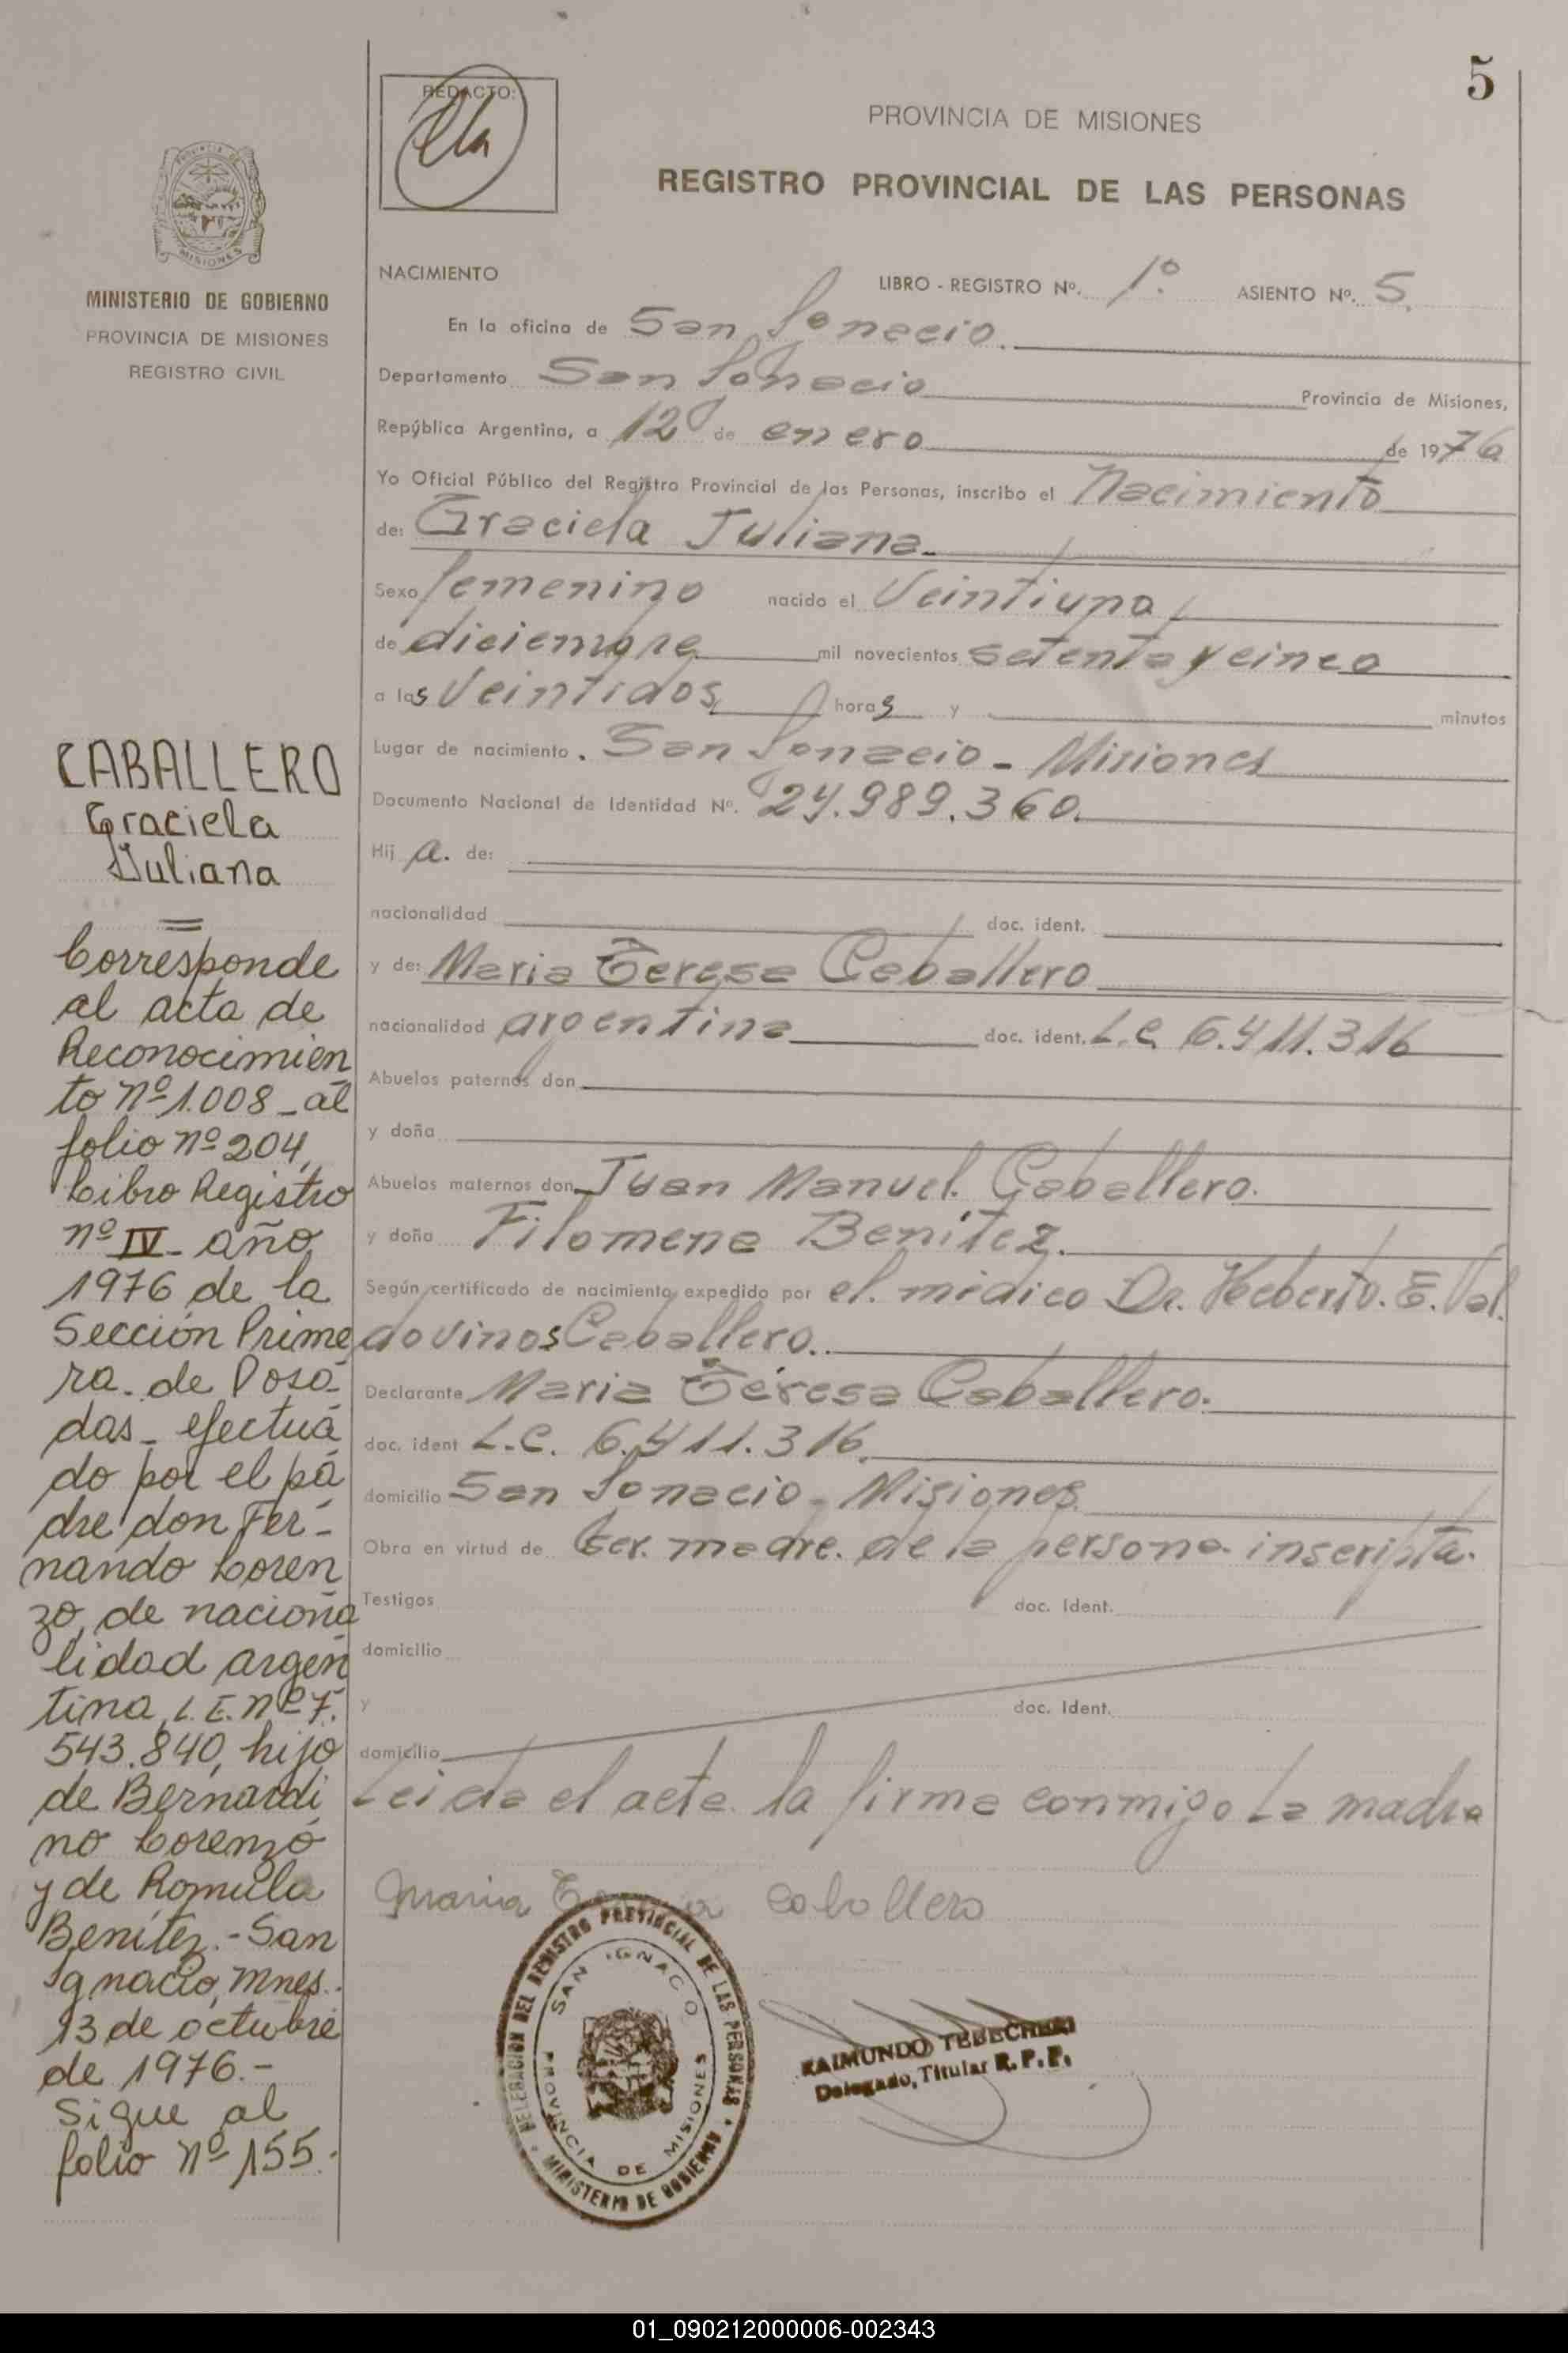 5
REDACTO:
PROVINCIA DE MISIONES
REGISTRO PROVINCIAL DE LAS PERSONAS
MISIONES
MINISTERIO DE GOBIERNO
PROVINCIA DE MISIONES
REGISTRO CIVIL
NACIMIENTO
LIBRO - REGISTRO Nº. 1º. ASIENTO Nº. 5.
En la oficina de San Ignacio.
Departamento San Ignacio Provincia de Misiones,
República Argentina, a 12 de enero de 1976
Yo Oficial Público del Registro Provincial de las Personas, inscribo el Nacimiento
de: Graciela Juliana.
Sexo femenino nacido el Veintiuno
de diciembre mil novecientos setenta y cinco
a las Veintidos horas y minutos
Lugar de nacimiento. San Ignacio - Misiones
Documento Nacional de Identidad Nº. 24.989.360.
Hij a. de:
nacionalidad doc. ident.
y de: Maria Teresa Caballero
nacionalidad argentina doc. ident. L.C. 6.411.316
Abuelos paternos don
y doña
Abuelos maternos don Juan Manuel Caballero.
y doña Filomena Benitez.
Según certificado de nacimiento expedido por el médico Dr. Heberto. E. Val.
dovinos Caballero.
Declarante Maria Teresa Caballero.
doc. ident L.C. 6.411.316.
domicilio San Ignacio - Misiones
Obra en virtud de Ser. madre. de la persona inscripta.
Testigos doc. Ident.
domicilio
y doc. Ident.
domicilio
Leida el acta la firma conmigo la madre
Maria Teresa Caballero
CABALLERO
Graciela
Juliana
Corresponde
al acta de
Reconocimien
to nº 1.008 - al
folio nº 204,
Libro Registro
nº IV - año
1976 de la
Sección Prime
ra. de Posa-
das - efectua
do por el pa
dre don Fer-
nando Loren
zo, de naciona
lidad argen
tina, L.E. nº 7.
543.840, hijo
de Bernardi
no Lorenzo
y de Romula
Benítez.- San
Ignacio, Mnes.
13 de octubre
de 1976.-
Sigue al
folio nº 155.-
DELEGACION DEL REGISTRO PROVINCIAL DE LAS PERSONAS
MINISTERIO DE GOBIERNO
SAN IGNACIO
PROVINCIA DE MISIONES
RAIMUNDO TEBECHERI
Delegado, Titular R. P. P.
01_090212000006-002343